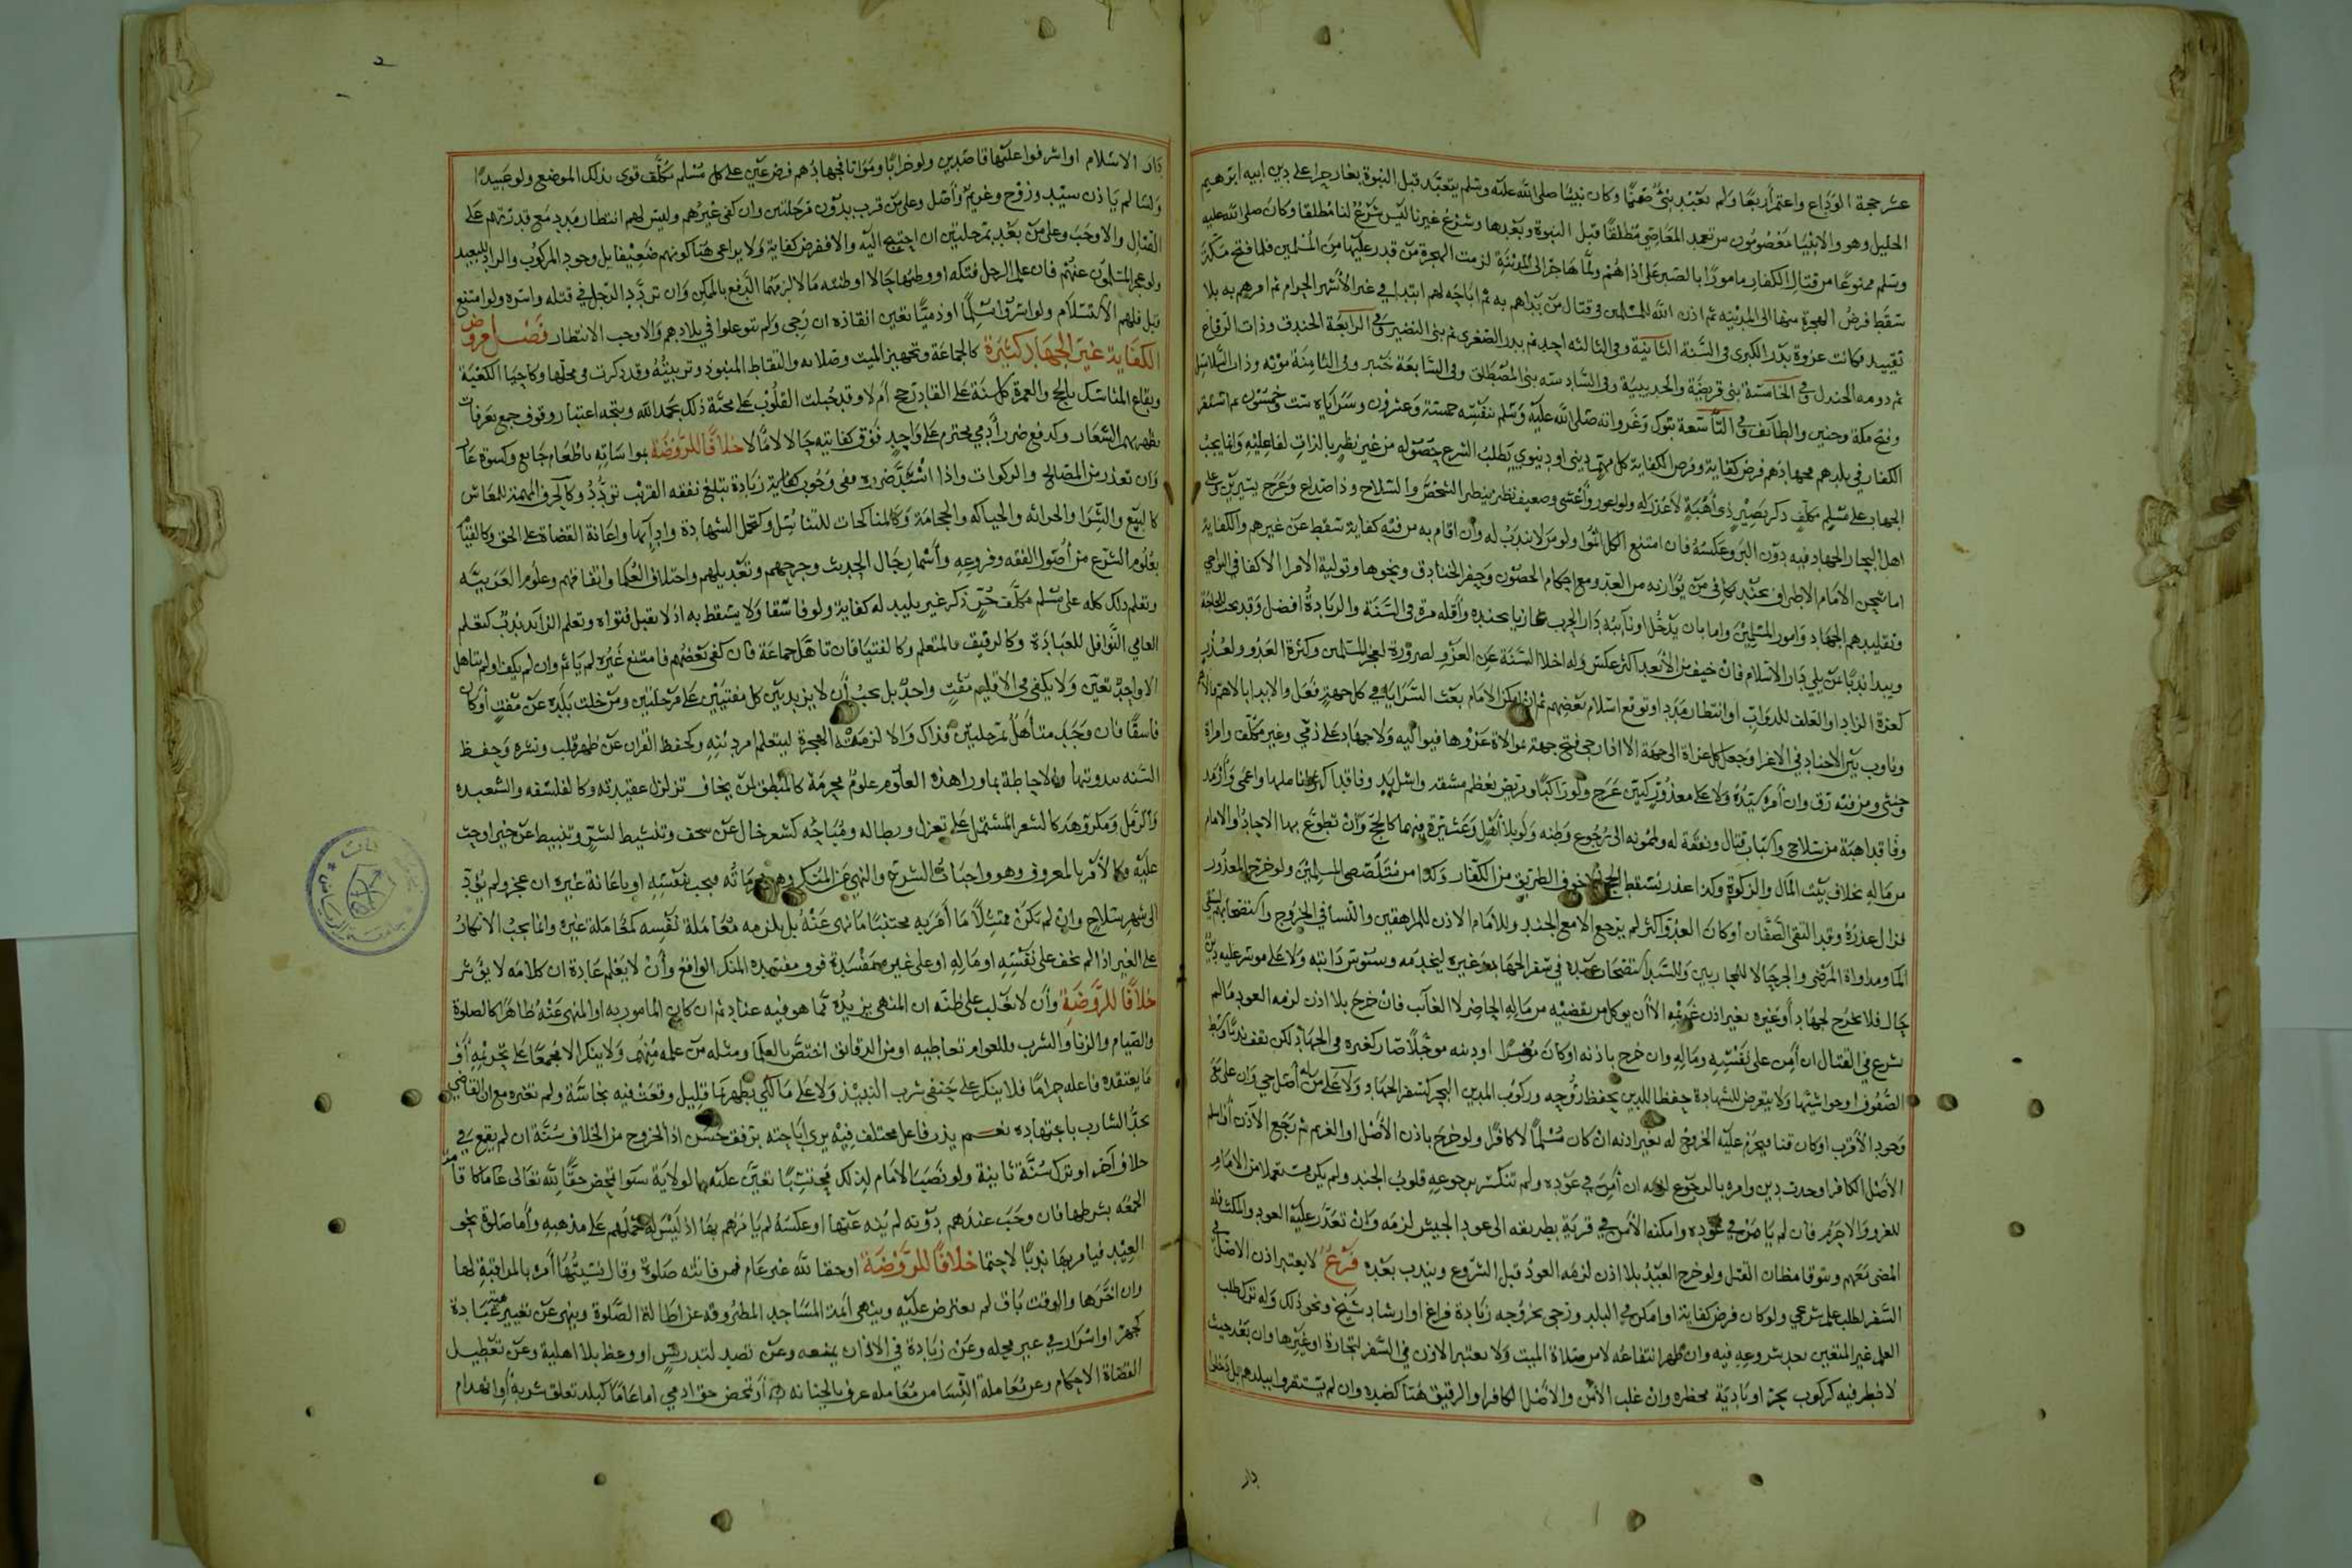 عشر حجة الوداع واعتمر أربعا ولم يعبد نبي صنما وكان نبينا صلى الله عليه وسلم يتعبد قبل النبوة بغار حرا على دين ابيه ابرهيم
الخليل وهو والانبيا معصومون من تعمد المعاصي مطلقا قبل النبوة وبعدها وشرع غيرنا ليس شرع لنا مطلقا وكان صلى الله عليه
وسلم ممنوعا من قتال الكفار مامورا بالصبر على اذاهم ولما هاجر الى المدينة لزمت الهجرة من قدر عليها من المسلمين فلما فتح مكة
سقط فرض الهجرة منها الى المدينة ثم اذن الله للمسلمين في قتال من بداهم به ثم اباحه لهم ابتدا في غير الأشهر الحرم ثم امرهم به بلا
تقييد فكانت غزوة بدر الكبرى في السنة الثانية وفي الثالثة احد ثم بدر الصغرى ثم بنى النضير وفي الرابعة الخندق وذات الرقاع
ثم دومه الجندل وفي الخامسة بنى قريضة والحديبية وفي السادسه بنى المصطلق وفي السابعة خيبر وفي الثامنة موته وذات السلاسل
وفتح مكة وحنين والطائف وفي التاسعة تبوك وغزواته صلى الله عليه وسلم بنفسه خمسة وعشرون وسراياه ست وخمسون ثم استقر
الكفار في بلدهم فجهادهم فرض كفاية وفرض الكفاية كل مهم ديني او دنيوي يطلب الشرع حصوله من غير نظر بالذات لفاعليه وانما يجب
الجهاد على مسلم مكلف ذكر بصير ذي أهبة لا عذر له ولو اعور وأعشى وضعيف نظر ينظر الشخص والسلاح وذا صداع وعرج يسيرين وعلى
اهل البحار الجهاد فيه دون البر وعكسه فان امتنع الكل اثموا ولو من لا يندب له وان اقام به من فيه كفاية سقط عن غيرهم والكفاية
اما شحن الامام الاطراف بجند كاف من يوازيه من العدو مع إحكام الحصون وحفر الخنادق ونحوها وتولية الامرا الاكفا في النواحي
وتقليدهم الجهاد وامور المسلمين واما بان يدخل او نائبه دار الحرب غازيا بجنده وأقله مرة في السنة والزيادة افضل
ويبدا ندبا بمن يلي دار الاسلام فان خيف من الأبعد اكثر عكس وله اخلا السنة عن الغزو لضرورة لعجز المسلمين وكثرة العدو ولعذر
كعزة الزاد او العلف للدواب او انتظار مدد او توقع اسلام بعضهم ثم ان امكن الامام بعث السرايا في كل جهة فعل والا بدا بالاهم فالاهم
ويناوب بين الاجناد في الاغزا وجعل كل غزاة الى جهة الا اذا رجي فتح جهة بموالاة غزوها فيواليه ولا جهاد على ذمي وغير مكلف وامراة
وخنثى ومن فيه رق وان أمره سيده ولا على معذور كبين عرج ولو راكبا ومريض بعظم مشقة واشل يد وفاقد اكثر اناملها واعمى وأرمد
وفاقد اهبة من سلاح واسباب قتال ونفقة له ولممونه الى رجوع وطنه ولو بلا أهل وعشيرة فيهما كالحج وان تطوع بها الاحاد او الامام
من ماله بخلاف بيت المال والزكوة وكذا عذر يسقط الحج لا خوف الطريق من الكفار وكذا من متلصصي المسلمين ولو خرج المعذور
فزال عذره وقد التقى الصفان او كان العدو اكثر لم يرجع الا مع الجند وللامام الاذن للمراهقين والنسا في الخروج واستصحابهم لسقي
الما ومداواة المرضى والجرحى لا للمجانين وللسيد استصحاب عبده في سفر الجهاد وغيره ليخدمه وسوس دابته ولا على موسر عليه دين
حال فلا يخرج لجهاد أو غيره بغير اذن غريمه الا أن يوكل من يقضيه من ماله الحاضر لا الغائب فان خرج بلا اذن لزمه العود مالم
يشرع في القتال ان أمن على نفسه وماله وان خرج باذنه او كان معسرا او دينه موجلا صار كغيره في الجهاد لكن يقف ندبا وسط
الصفوف او حواشيها ولا يتعرض للشهادة حفظا للدين بحفظ روحه وركوب المدين البحر كسفر الجهاد ولا على من له أصل حي وان علا مع
وجود الأقرب او كان قنا فيحرم عليه الخروج له بغير اذنه ان كان مسلما لا كافرا ولو خرج باذن الأصل او الغريم ثم رجع الآذن او اسلم
الأصل الكافر او حدث دين وامره بالرجوع لزمه ان أمن في عوده ولم تنكسر برجوعه قلوب الجند ولم يكن خرج بجعل من الامام
للغزو والا حرم فان لم يامن في عوده وامكنه الأمن في قرية بطريقه الى عود الجيش لزمه وان تعذر عليه العود والمكث فله
المضي معهم ويتوقا مظان القتل ولو خرج العبد بلا اذن لزمه العود قبل الشروع ويندب بعده فرع لا يعتبر اذن الاصل في
السفر لطلب علم شرعي ولو كان فرض كفاية او امكن في البلد ورجى بخروجه زيادة فراغ او ارشاد شيخ ونحو ذلك وله ترك طلب
العلم غير المتعين بعد شروعه فيه وان ظهر انتفاعه لا من صلاة الميت ولا يعتبر الاذن في السفر لتجارة او غيرها وان بعد حيث
لا خطر فيه كركوب بحر او بادية مخطرة وان غلب الأمن والأصل الكافر والرقيق هنا كضده وان لم يستقروا ببلدهم بل دخلوا
دار
دار الاسلام او اشرفوا عليها قاصدين ولو خرابا ومواتا فجهادهم فرض عين على كل مسلم مكلف قوى بذلك الموضع ولو عبيدا
ونسا لم ياذن سيد وزوج وغريم وأصل وعلى من قرب بدون مرحلتين وان كفى غيرهم وليس لهم انتظار مدد مع قدرتهم على
القتال والا وجب وعلى من بعد بمرحلتين ان احتيج اليه والا ففرض كفاية ولا يراعى هنا كونهم ضعيفا بل وجود المركوب والزاد للبعيد
ولو عجز المسلمون عنهم فان علم الرجل فتكه او وطئها حالا او ظنته مآلا لزمهما الدفع بالممكن وان تردد الرجل في قتله واسره ولو امتنع
قبل فلهم الاستسلام ولو اسروا مسلما او ذميا تعين انقاذه ان رجي ولم يتوغلوا في بلادهم والا وجب الانتظار فصل فروض
الكفاية غير الجهاد كثيرة كالجماعة وتجهيز الميت وصلاته والتقاط المنبوذ وتربيته وقد ذكرت في محلها وكاحيا الكعبة
وبقاع المناسك بالحج والعمرة كل سنة على القادر حج ام لا وقد جبلت القلوب على محبة ذلك بحمد الله ويتجه اعتبار وقوف جمع بعرفات
يظهر بهم الشعار وكدفع ضرر أدمي محترم على واجد فوق كفايته حالا لا مآلا خلافا للروضة بمواساته باطعام جايع وكسوة عار
وان تعذر من المصالح والزكوات واذا اشتد ضرره ففي وجوب كفاية زيادة تبلغ نفقة القريب تردد وكالحرف المهمة للمعاش
كالبيع والشرا والحراثه والحياكه والحجامة وكالمناكحات للتناسل وكتحمل الشهادة وادائها واعانة القضاة على الحق وكالقيام
بعلوم الشرع من أصول الفقه وفروعه وأسما رجال الحديث وجرحهم وتعديلهم واختلاف العلما واتفاقهم وعلوم العربية
وتعلم ذلك كله على مسلم مكلف حر ذكر غير بليد له كفاية ولو فاسقا ولا يسقط به اذ لا تقبل فتواه وتعلم الزائد ندب كتعلم
العامي النوافل للعبادة وكالرفيق بالمتعلم وكالفتيا فان تاهل جماعة فان كفى بعضهم فامتنع غيره لم ياثم وان لم يكف او لم يتاهل
الا واحد تعين ولا يكفي في الاقليم مفت واحد بل يجب أن لا يزيد بين كل مفتيين على مرحلتين ومن خلت بلده عن مفت أو كان
فاسقا فان وجد متأهل بمرحلتين فذاك والا لزمته الهجرة ليتعلم امر دينه وكحفظ القران عن ظهر قلب ونشره وحفظ
السنه بدوينها والاحاطة بما ورا هذه العلوم علوم محرمة كالمنطق لمن يخاف تزلزل عقيدته وكالفلسفه والشعبده
والرمل ومكروهة كالشعر المشتمل على تغزل وبطاله ومباحه كشعر خال عن سخف وتنشيط لشر وتثبيط عن خير او حث
عليه وكالأمر بالمعروف وهو واجبات الشرع والنهي عن المنكر وهو محرماته فيجب بنفسه او باعانة غيره ان عجز ولم يؤد
الى شهر سلاح وان لم يكن ممتثلا ما أمر به مجتنبا ما نهى عنه بل يلزمه معاملة نفسه كمعاملة غيره وانما يجب الانكار
على الغير اذا لم يخف على نفسه او ماله او على غيره مفسدة فوق مفسدة المنكر الواقع وأن لا يعلم عادة ان كلامه لا يؤثر
خلافا للروضة وأن لا يغلب على ظنه ان المنهي يزيد مما هو فيه عنادا ثم ان كان المامور به او المنهى عنه ظاهرا كالصلوة
والصيام والزنا والشرب فللعوام تعاطيه او من الدقائق اختص بالعلما ومثله من علمه منهم ولا ينكر الا مجمعا على تحريمه أو
ما يعتقده فاعله حراما فلا ينكر على حنفى شرب النبيذ ولا على مالكي تطهر بما قليل وقعت فيه نجاسة ولم تغيره مع ان القاضي
يحد الشارب باجتهاده نعم يندب فاعل مختلف فيه يرى اباحته برفق حسن اذ الخروج من الخلاف سنة ان لم يقع في
خلاف آخر او ترك سنة ثابتة ولو نصب الامام لذلك محتسبا تعين عليه بالولاية سوا تمحض حقا لله تعالى عاما كاقامة
الجمعه بشرطها فان وجب عندهم دونه لم ينه عنها او عكسه لم يامرهم بها اذ ليس له حملهم على مذهبه واما صلوة نحو
العيد فيامر بها ندبا لا حتما خلافا للروضة او حقا لله غير عام فمن فاتته صلوة وقال نسيتها أمره بالمراقبة لها
وان اخرها والوقت باق لم يعترض عليه وينهى أئمة المساجد المطروقة عن اطالة الصلوة وينهى عن تغيير هيئة عبادة
كجهر او اسرار في غير محله وعن زيادة في الاذان يمنعه وعن تصد لتدريس او وعظ بلا اهلية وعن تعطيل
القضاة الاحكام وعن معاملة النسا من معامله عرف بالخيانه او تمحض حق ادمي اما عاما كبلد تعلق شربه أو انهدام